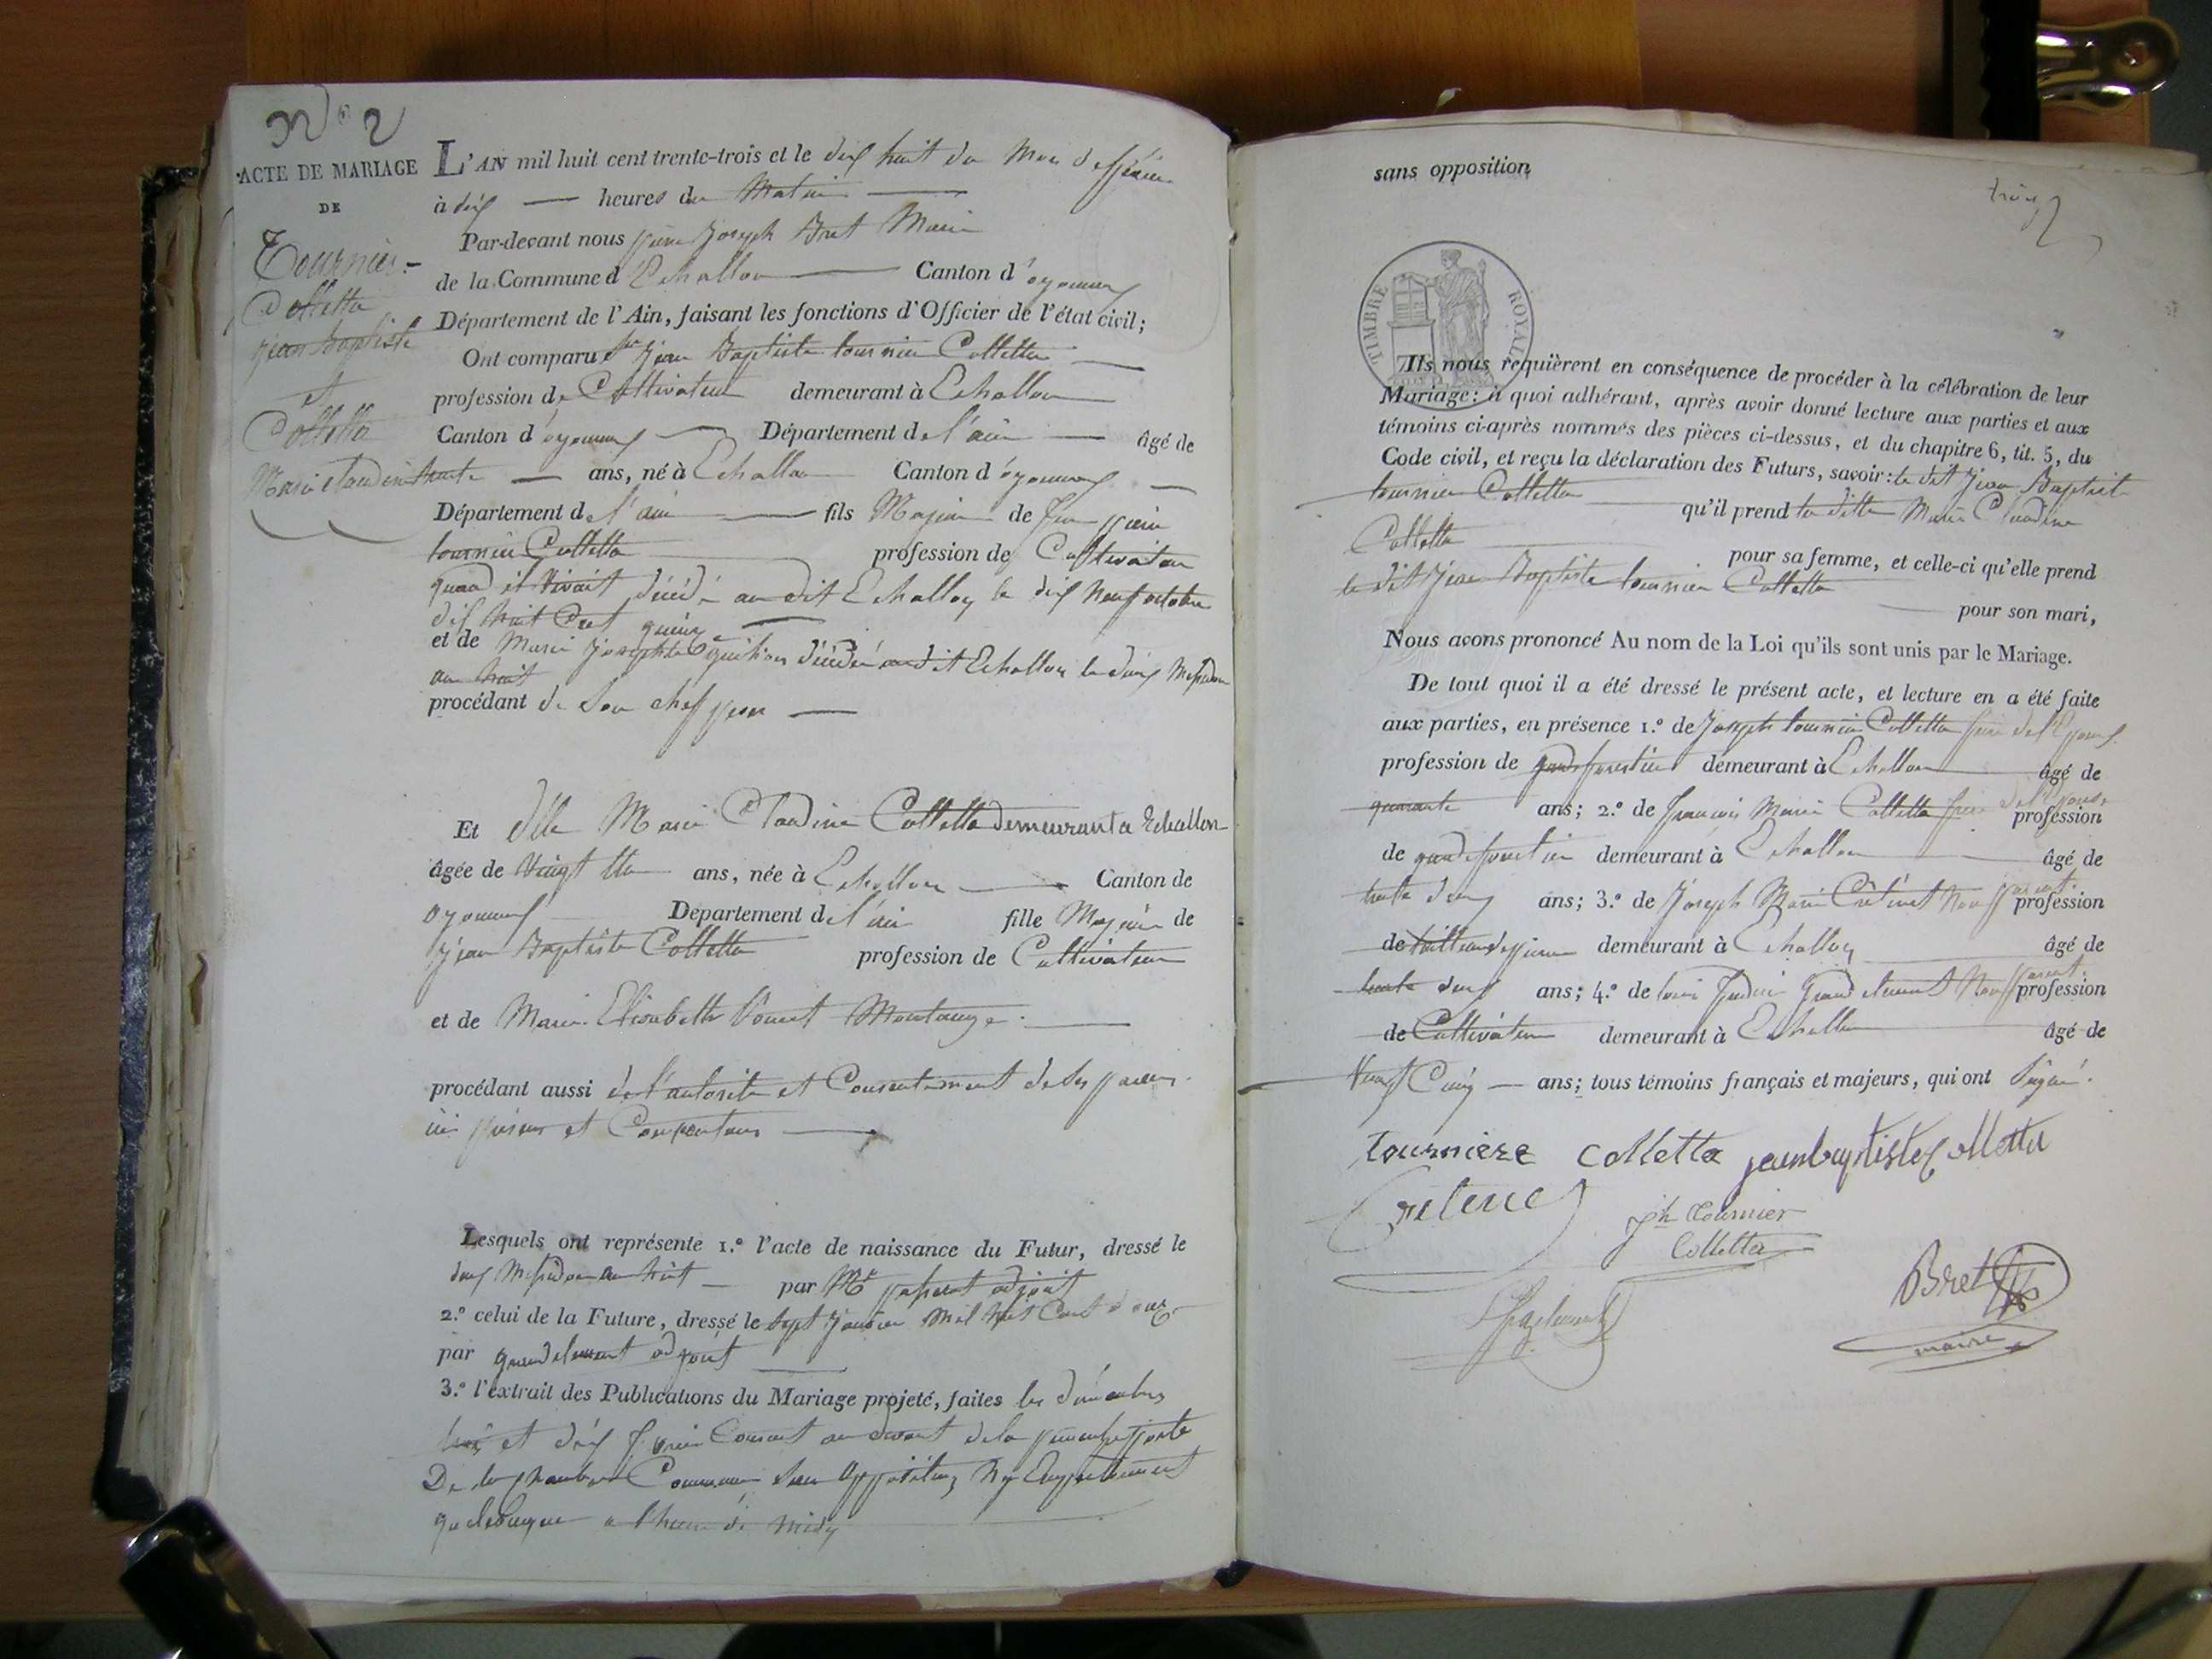 N° 2
ACTE DE MARIAGE
DE
Tournier-
Colletta
jean Baptiste
et
Colletta
Marie Claudine
L'AN mil huit cent trente-trois et le dix huit du Mois de
à dix heures du Matin
Par-devant nous pierre Joseph Bret Maire
de la Commune d'Echallon Canton d'oyonnax
Département de l'Ain, faisant les fonctions d'Officier de l'état civil;
Ont comparu Sr Jean Baptiste tournier Colletta
profession de Cultivateur demeurant à Echallon
Canton d'oyonnax Département de l'ain âgé de
trente ans, né à Echallon Canton d'oyonnax
Département de l'ain fils Majeur de feu pierre
tournier Colletta profession de Cultivateur
quand il Vivait décédé au dit Echallon le dix Neuf octobre
dix huit Cent quinze
et de Marie Josephte décédé au dit Echallon le
an huit
procédant de Son chef
Et dlle Marie Claudine Colletta demeurant a Echallon
âgée de Vingt ans, née à Echallon Canton de
oyonnax Département de l'ain fille Majeure de
Jean Baptiste Colletta profession de Cultivateur
et de Marie Elisabeth Montange
procédant aussi de l'autorité et Consentement de Ses
ici présens et Consentans
Lesquels ont représenté 1.° l'acte de naissance du Futur, dressé le
Messidor an huit par Mr adjoint
2.° celui de la Future, dressé le Sept Janvier Mil huit Cent
par grandclement adjoint
3.° l'extrait des Publications du Mariage projeté, faites les dimanches
et dix Courant au devant de la porte
De la Commune San opposition Ny Empechement
quelconque a l'heure de midy
sans opposition
trois
TIMBRE ROYAL
Ils nous requièrent en conséquence de procéder à la célébration de leur
Mariage: à quoi adhérant, après avoir donné lecture aux parties et aux
témoins ci-après nommés des pièces ci-dessus, et du chapitre 6, tit. 5, du
Code civil, et reçu la déclaration des Futurs, savoir: le dit Jean Baptiste
tournier Colletta qu'il prend la ditte Marie Claudine
Colletta pour sa femme, et celle-ci qu'elle prend
le dit Jean Baptiste tournier Colletta pour son mari,
Nous avons prononcé Au nom de la Loi qu'ils sont unis par le Mariage.
De tout quoi il a été dressé le présent acte, et lecture en a été faite
aux parties, en présence 1.° de Joseph tournier Colletta frère de l'Epoux
profession de garde forestier demeurant à Echallon âgé de
quarante ans; 2.° de françois Marie Colletta frere de l'Epouse profession
de garde forestier demeurant à Echallon âgé de
trente deux ans; 3.° de Joseph Marie Crétinet Non parent profession
de demeurant à Echallon âgé de
trente deux ans; 4.° de Grandclement Non parent profession
de Cultivateur demeurant à Echallon âgé de
Cinq ans; tous témoins français et majeurs, qui ont Signé.
tourniere colletta jeanbaptiste Colletta
jh tournier
Colletta
Bret
maire